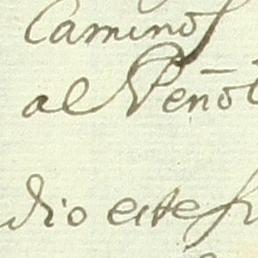 Caminos
al Peño
dio este